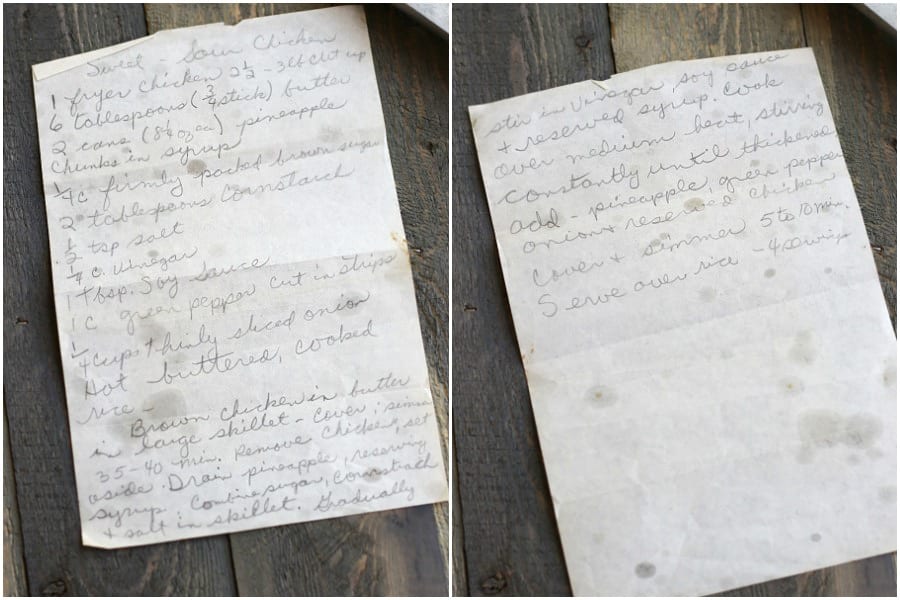 Sweet - Sour Chicken
1 fryer chicken 2½ - 3lb cut up
6 tablespoons (¾ stick) butter
2 cans (8¼ oz ea) pineapple
Chunks in syrup
¼ c firmly packed brown sugar
2 tablespoons Cornstarch
½ tsp salt
¼ c. Vinegar
1 Tbsp. Soy Sauce
1 c green pepper cut in strips
¼ cups thinly sliced onion
Hot buttered, cooked
rice -
Brown chicken in butter
in large skillet - Cover; simmer
35-40 min. Remove Chicken, set
aside. Drain pineapple, reserving
syrup. Combine sugar, Cornstarch
+ salt in skillet. Gradually
stir in Vinegar, soy sauce
+ reserved syrup. Cook
over medium heat, stirring
Constantly until thickened.
add - pineapple, green pepper
onion + reserved Chicken
Cover + simmer 5 to 10 min.
Serve over rice - 4 servings